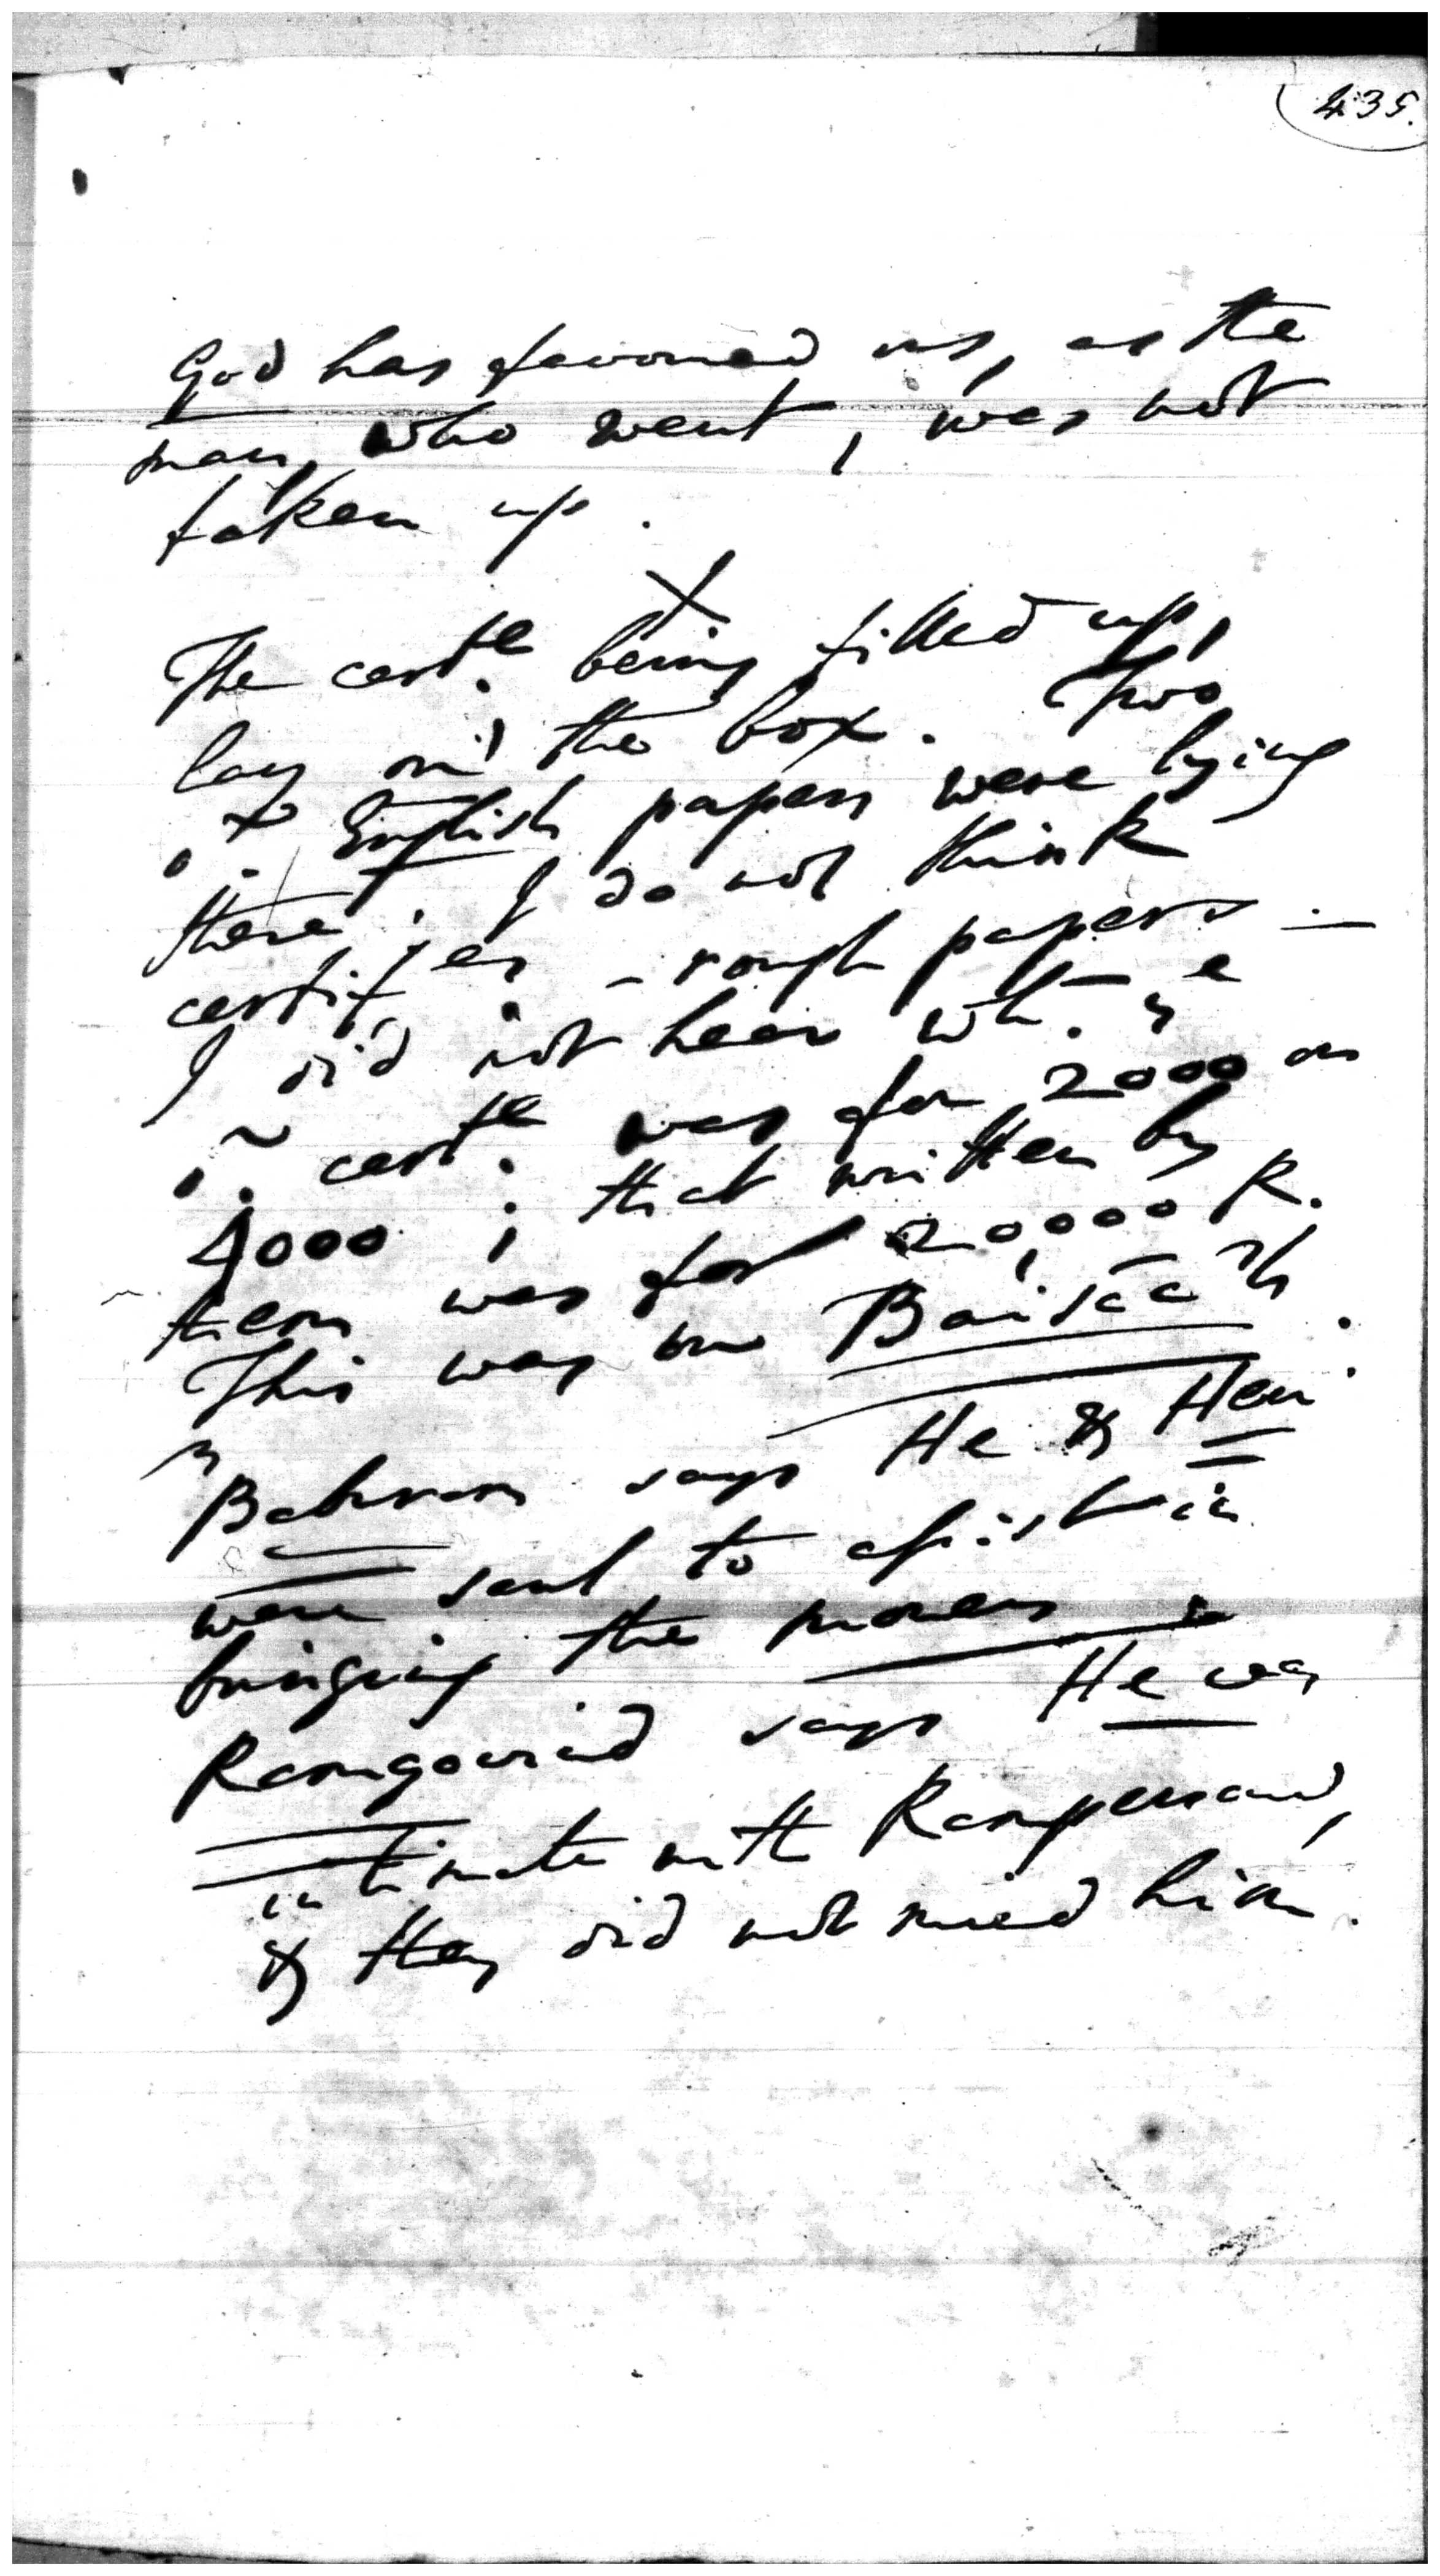 435.
God has favoured us, as the
man, who went, was not
taken up.
The certe. being filled up,
lay on the box. Two
English papers were lying
there; I do not think
certif. - rough papers -
I did not hear wh. ye
certe. was for 2000 or
4000; that written by
them was for 20,000 R.
This was on
says He &
were sent to assist in
bringing the money
says He was
intimate with Rampersaud,
& they did not mind him.